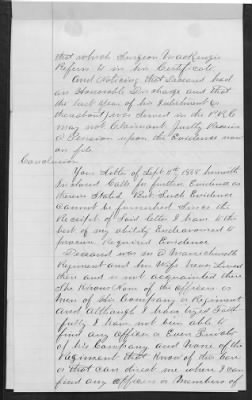 that which Surgeon Mackenzie
Refers to in his Certificate
And Noticing that Deceased had
an Honorable Discharge and that
the last year of his Enlistment (or
thereabout) was Served in the V.R.C.
may not Claimant justly Receive
a Pension upon the Evidence now
on file
Conclusion
Your Letter of Sept 8th 1888 herewith
Inclosed Calls for further Evidence as
therein Stated But Such Evidence
Cannot be furnished Since the
Receipt of Said letter I have to the
best of my ability Endeavoured to
procure Required Evidence
Deceased was in a Massachusetts
Regiment and his Wife never lived
there and is not acquainted there
She Knows None of the officers or
Men of his Company or Regiment
And although I have tryed Faith
fully I have not been able to
find any officer or Even Private
of his Company and None of the
Regiment that Know of the Case
or that can direct me where I can
find any officers or Members of